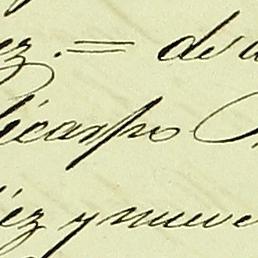 ez. = de
licarpo
iez y nueve